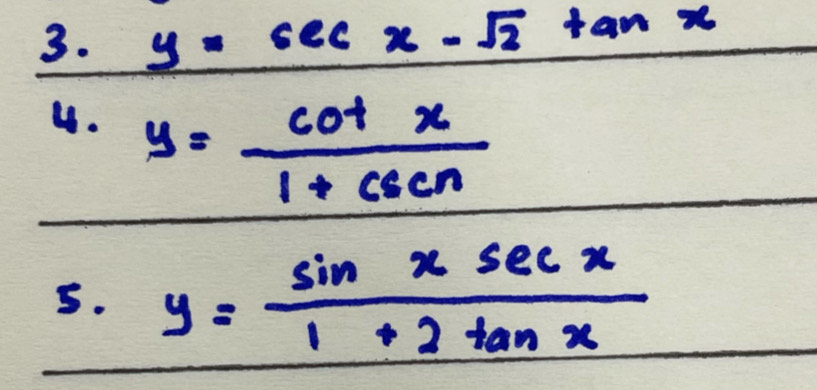 3. y = sec x - √2 tan x
4. y = cot x / 1 + cscn
5. y = sin x sec x / 1 + 2 tan x